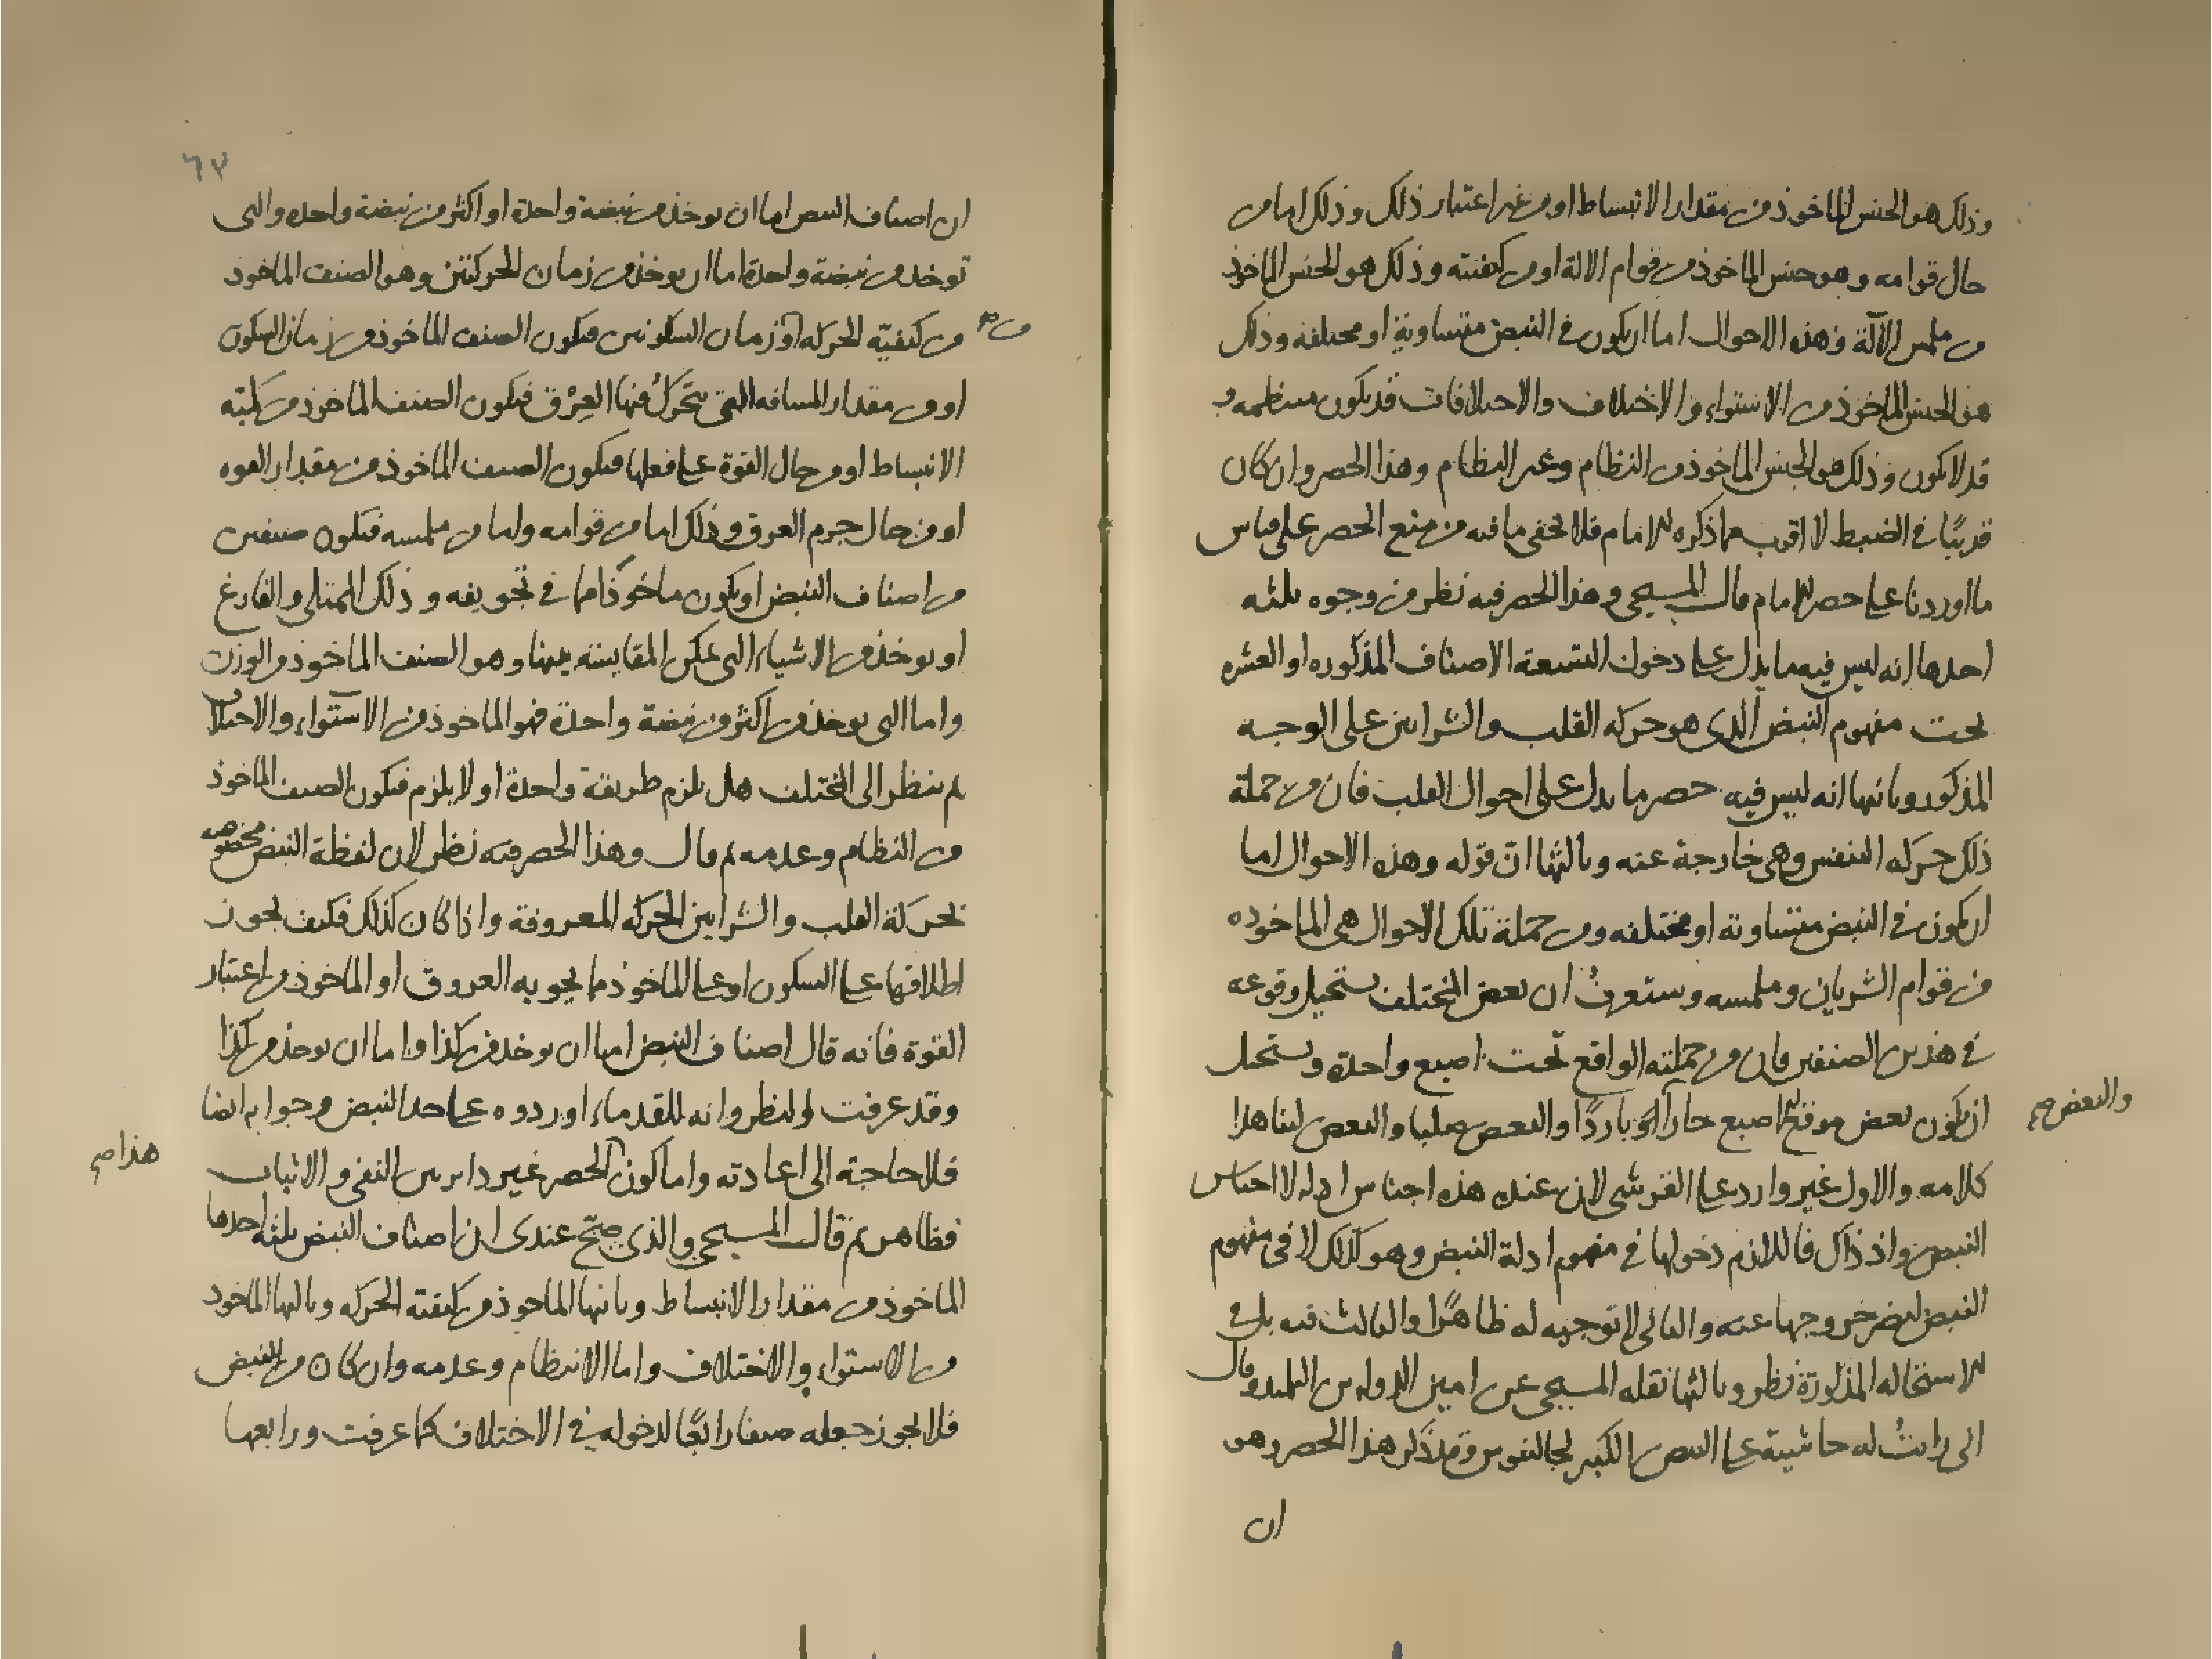 وذلك هو الجنس الماخوذ من مقدار الانبساط او من غير اعتبار ذلك وذلك اما من
حال قوامه وهو جنس الماخوذ من قوام الالة او من كيفيته وذلك هو الجنس الماخوذ
من ملمس الآلة وهذه الاحوال اما ان يكون في النبض متساوية او مختلفه وذلك
هو الجنس الماخوذ من الاستواء والاختلاف والاختلافات قد يكون منتظمه و
قد لا يكون وذلك هو الجنس الماخوذ من النظام وغير النظام وهذا الحصر وان كان
قريبًا في الضبط لا اقرب مما ذكره الامام فلا يخفى ما فيه من منع الحصر على قياس
ما اوردنا على حصر الامام قال المسيحى وهذا الحصر فيه نظر من وجوه ثلثه
احدها انه ليس فيه ما يدل على دخول التسعة الاصناف المذكوره او العشره
تحت مفهوم النبض الذى هو حركه القلب والشرايين على الوجه
المذكور وثانيها انه ليس فيه حصر ما يدل على احوال القلب فان من جملة
ذلك حركه التنفس وهى خارجة عنه وثالثها انّ قوله وهذه الاحوال اما
ان يكون في النبض متساويه او مختلفه ومن جملة تلك الاحوال هى الماخوذه
من قوام الشريان وملمسه وستعرفُ ان بعض المختلف يستحيل وقوعه
في هذين الصنفين فان من جملته الواقع تحت اصبع واحدة ويستحيل
ان يكون بعض موقع الاصبع حارًا او باردًا والبعض صلبا والبعض لينا هذا
والبعض صح
كلامه والاول غير وارد على القرشى لان عنده هذه اجناس ادله لا اجناس
النبض واذ ذاك فاللازم دخولها في مفهوم ادلة النبض وهو كذلك لا فى مفهوم
النبض ليضر خروجها عنه والثانى لا توجيه له ظاهرًا والثالث فيه بل في
الاستحاله المذكورة نظر وثالثها نقله المسيحى عن امين الدوله بن التلميذ وقال
انى رايتُ له حاشية على النبض الكبير لجالينوس وقد ذكر هذا الحصر وهو
ان
٦٧
ان اصناف النبض اما ان يوخذ من نبضة واحدة او اكثر من نبضة واحده والتى
توخذ من نبضة واحدة اما ان يوخذ من زمان الحركتين وهو الصنف الماخوذ
من كيفيّة الحركه او زمان السكونين فيكون الصنف الماخوذ من زمان السكون
من صح
او من مقدار المسافه التى يتحركُ فيها العِرْق فيكون الصنف الماخوذ من كمية
الانبساط او من حال القوة على فعلها فيكون الصنف الماخوذ من مقدار القوه
او من حال جرم العرق وذلك اما من قوامه واما من ملمسه فيكون صنفين
من اصناف النبض او يكون ماخوذا مما في تجويفه وذلك الممتلى والفارغ
او يوخذ من الاشياء التى يمكن المقايسه بينها وهو الصنف الماخوذ من الوزن
واما التى يوخذ من اكثر من نبضة واحدة فهو الماخوذ من الاستواء والاختلاف
ثم ينظر الى المختلف هل يلزم طريقة واحدة او لا يلزم فيكون الصنف الماخوذ
من النظام وعدمه ثم قال وهذا الحصر فيه نظر لان لفظة النبض مخصوصه
بحركة القلب والشرايين الحركه المعروفة واذا كان كذلك فكيف يجوز
اطلاقها على السكون او على الماخوذ مما يحويه العروق او الماخوذ من اعتبار
القوة فانه قال اصناف النبض اما ان يوخذ من كذا واما ان يوخذ من كذا
وقد عرفت الاول نظر وانه للقدماء اوردوه على حد النبض وجوابه ايضا
فلا حاجة الى اعادته واما كون الحصر غير داير بين النفى والاثبات
هذا صح
فظاهر ثم قال المسيحى والذى صحّ عندى ان اصناف النبض ثلثه احدها
الماخوذ من مقدار الانبساط وثانيها الماخوذ من كيفية الحركه وثالثها الماخوذ
من الاستواء والاختلاف واما الانتظام وعدمه وان كان من النبض
فلا يجوز جعله صنفا رابعًا لدخوله في الاختلاف كما عرفت ورابعها